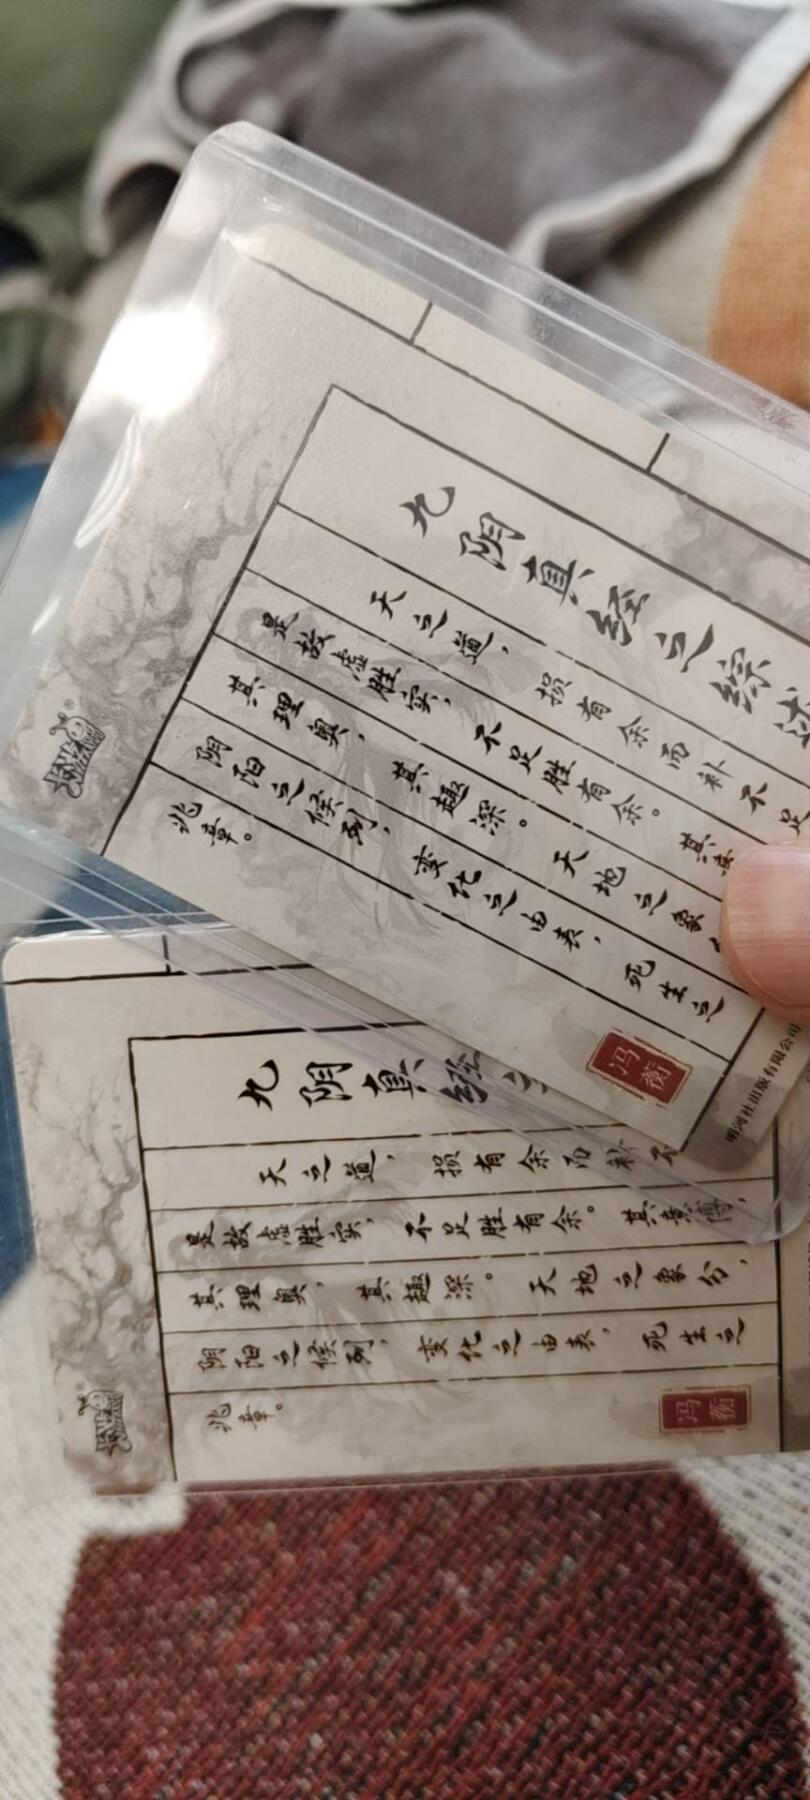 九阴真经之综述
天之道，损有余而补不足
是故虚胜实，不足胜有余。其意
其理奥，其趣深。天地之象
阴阳之候列，变化之由表，死生之
兆章。
冯衡
明河社出版有限公司
九阴真经之
天之道，损有余而补不
是故虚胜实，不足胜有余。其意博，
其理奥，其趣深。天地之象分，
阴阳之候列，变化之由表，死生之
兆章。
冯衡